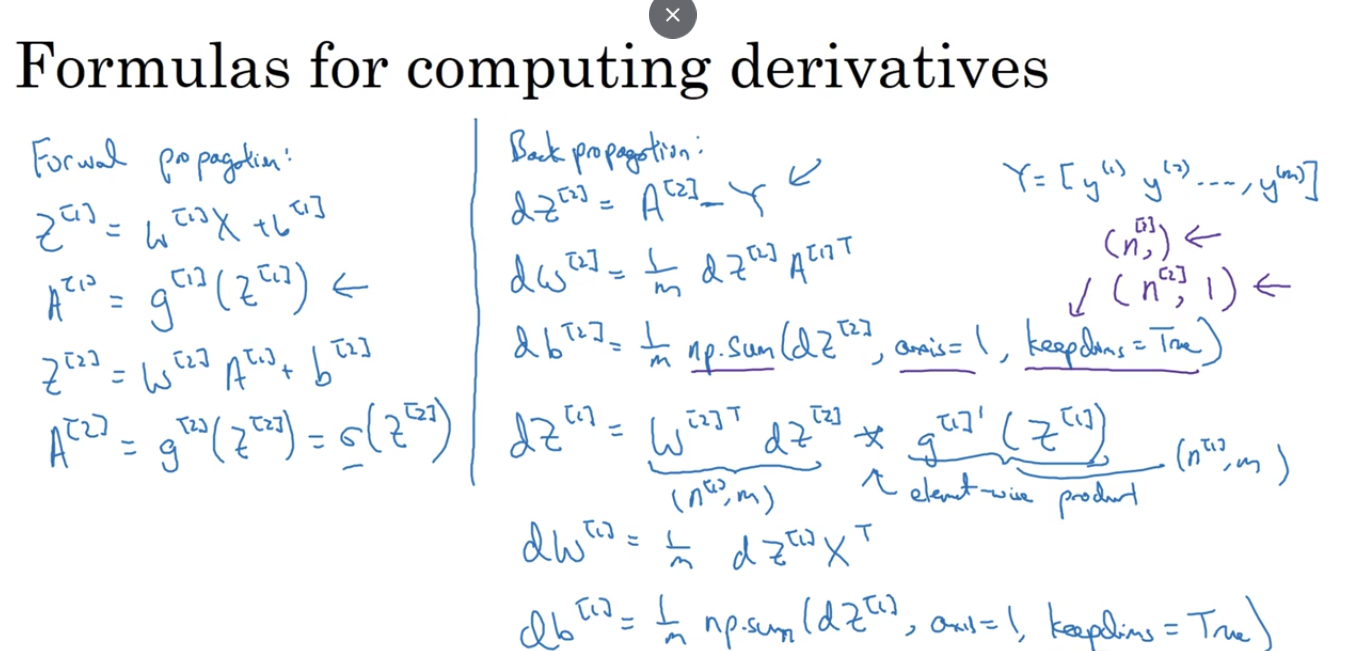 Formulas for computing derivatives
Forwal propagation:
Z^[1] = W^[1]X + b^[1]
A^[1] = g^[1](Z^[1]) ←
Z^[2] = W^[2] A^[1] + b^[2]
A^[2] = g^[2](Z^[2]) = σ(Z^[2])
Back propagation:
dZ^[2] = A^[2] - Y ↙
dW^[2] = 1/m dZ^[2] A^[1]T
db^[2] = 1/m np.sum(dZ^[2], axis=1, keepdims=True)
dZ^[1] = W^[2]T dZ^[2] * g^[1]'(Z^[1])
(n^[1], m) ↖ element-wise product (n^[1], m)
dW^[1] = 1/m dZ^[1] X^T
db^[1] = 1/m np.sum(dZ^[1], axis=1, keepdims=True)
Y = [y^(1) y^(2) ...., y^(m)]
(n^[2],) ←
↙ (n^[2], 1) ←